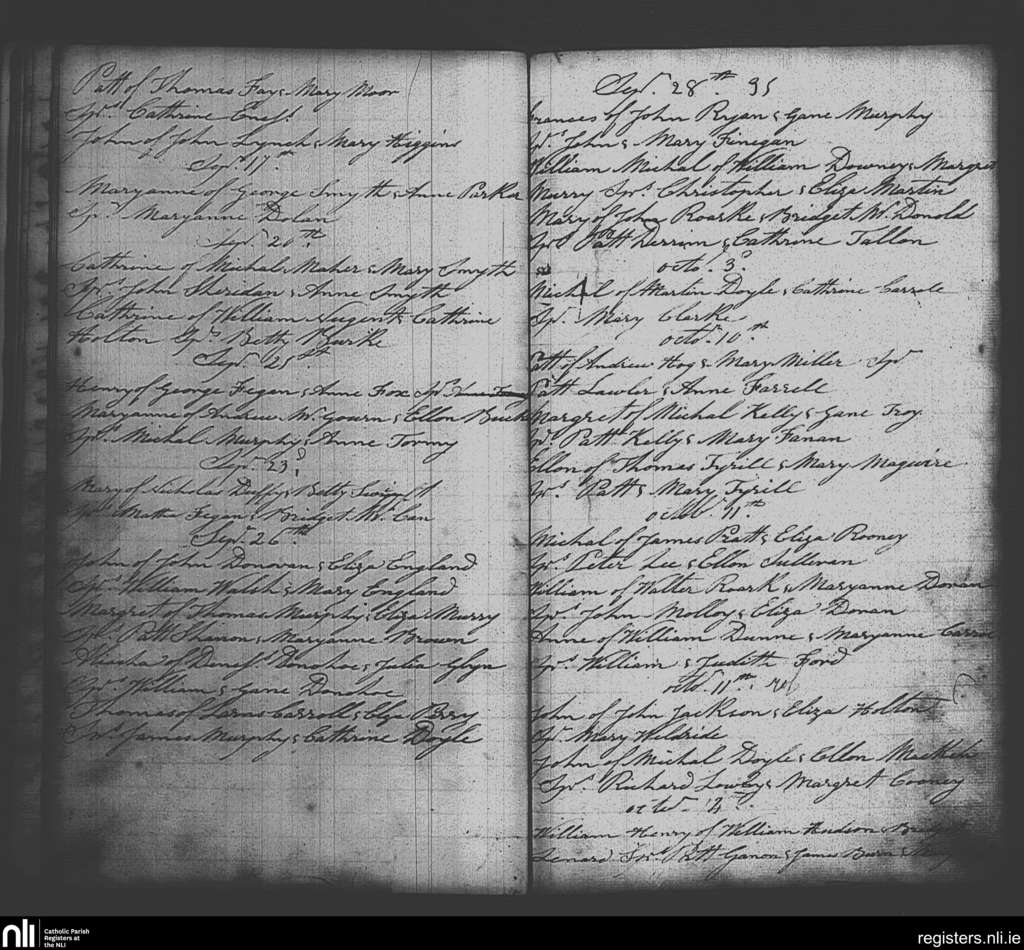 Patt of Thomas Fay & Mary Moor
Spr. Cathrine
John of John Lynch & Mary Higgins
Sepr. 17th
Maryanne of George Smyth & Anne Parker
Spr. Maryanne Dolan
Sepr. 20th
Cathrine of Michal Maher & Mary Smyth
Sprs. John Sheridan & Anne Smyth
Cathrine of William Nugent & Cathrine
Holton Spr. Betty Burke
Sepr. 25th
Henry of George Fegan & Anne Fox Spr.
Maryanne of Andrew Mc Gourn & Ellon
Sprs. Michal Murphy & Anne Tormy
Sepr. 23d
Mary of Nicholas Duffy & Betty
Sprs. Mathw Fegan & Bridget Mc Can
Sepr. 26th
John of John Donovan & Eliza England
Sprs. William Walsh & Mary England
Margret of Thomas Murphy & Eliza Murry
Sprs. Patt Shanon & Maryanne Brown
of Donoho & Julia Glyn
Sprs. William & Jane Donohoe
Thomas of Carroll & Elza Brry
Sprs. James Murphy & Cathrine Doyle
Sepr. 28th 95
Frances of John Ryan & Jane Murphy
Sprs. John & Mary Finegan
William Michal of William Downey & Margret
Murry Sprs. Christopher & Eliza Martin
Mary of John Roarke & Bridget Mc Donold
Sprs. Patt Derrim & Cathrine Tallon
octo. 3d
Michal of Martin Doyle & Cathrine Carrole
Spr. Mary Clarke
octo. 10th
Patt of Andrew Hog & Mary Miller Spr
Patt Lawler & Anne Farrell
Margret of Michal Kelly & Jane Troy
Sprs. Patt Kelly & Mary Fanan
Ellon of Thomas Tyrill & Mary Maguire
Sprs. Patt & Mary Tyrill
octob. 11th
Michal of James Pratt & Eliza Rooney
Sprs. Peter Lee & Ellon Sullivan
William of Walter Roark & Maryanne Donan
Sprs. John Molloy & Eliza Donan
Anne of William Dunne & Maryanne
Sprs. William & Judith Ford
octo. 11th
John of John Jackson & Eliza Holton
Spr. Mary Heldride
John of Michal Doyle & Ellon
Sprs. Richard & Margret Cooney
octor.
William Henry of William Hudson &
Lenard Sprs. Patt Ganon & James